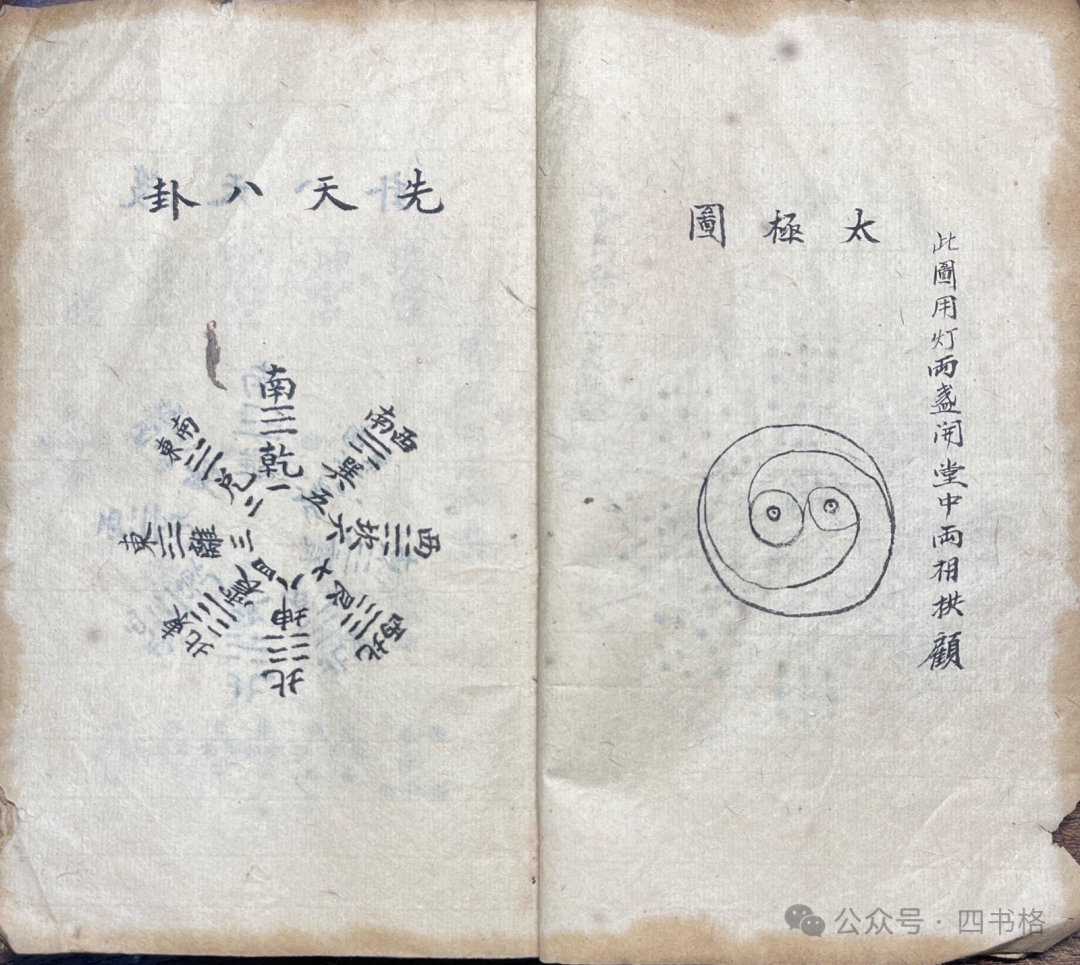 此圖用灯両盞開堂中両相栱顧
太極圖
先天八卦
南 ☰ 乾一
東南 ☱ 兌二
東 ☲ 離三
東北 ☳ 震四
西南 ☴ 巽五
西 ☵ 坎六
西北 ☶ 艮七
北 ☷ 坤八
公众号 · 四书格